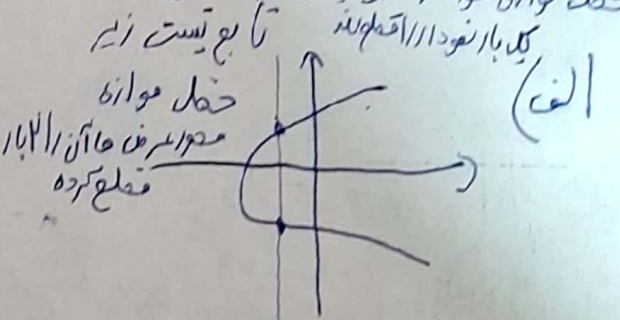 یک بار نمودار را قطع کند تابع نیست زیرا
الف)
خط موازی
محور عرض ها آن را 2 بار
قطع کرده